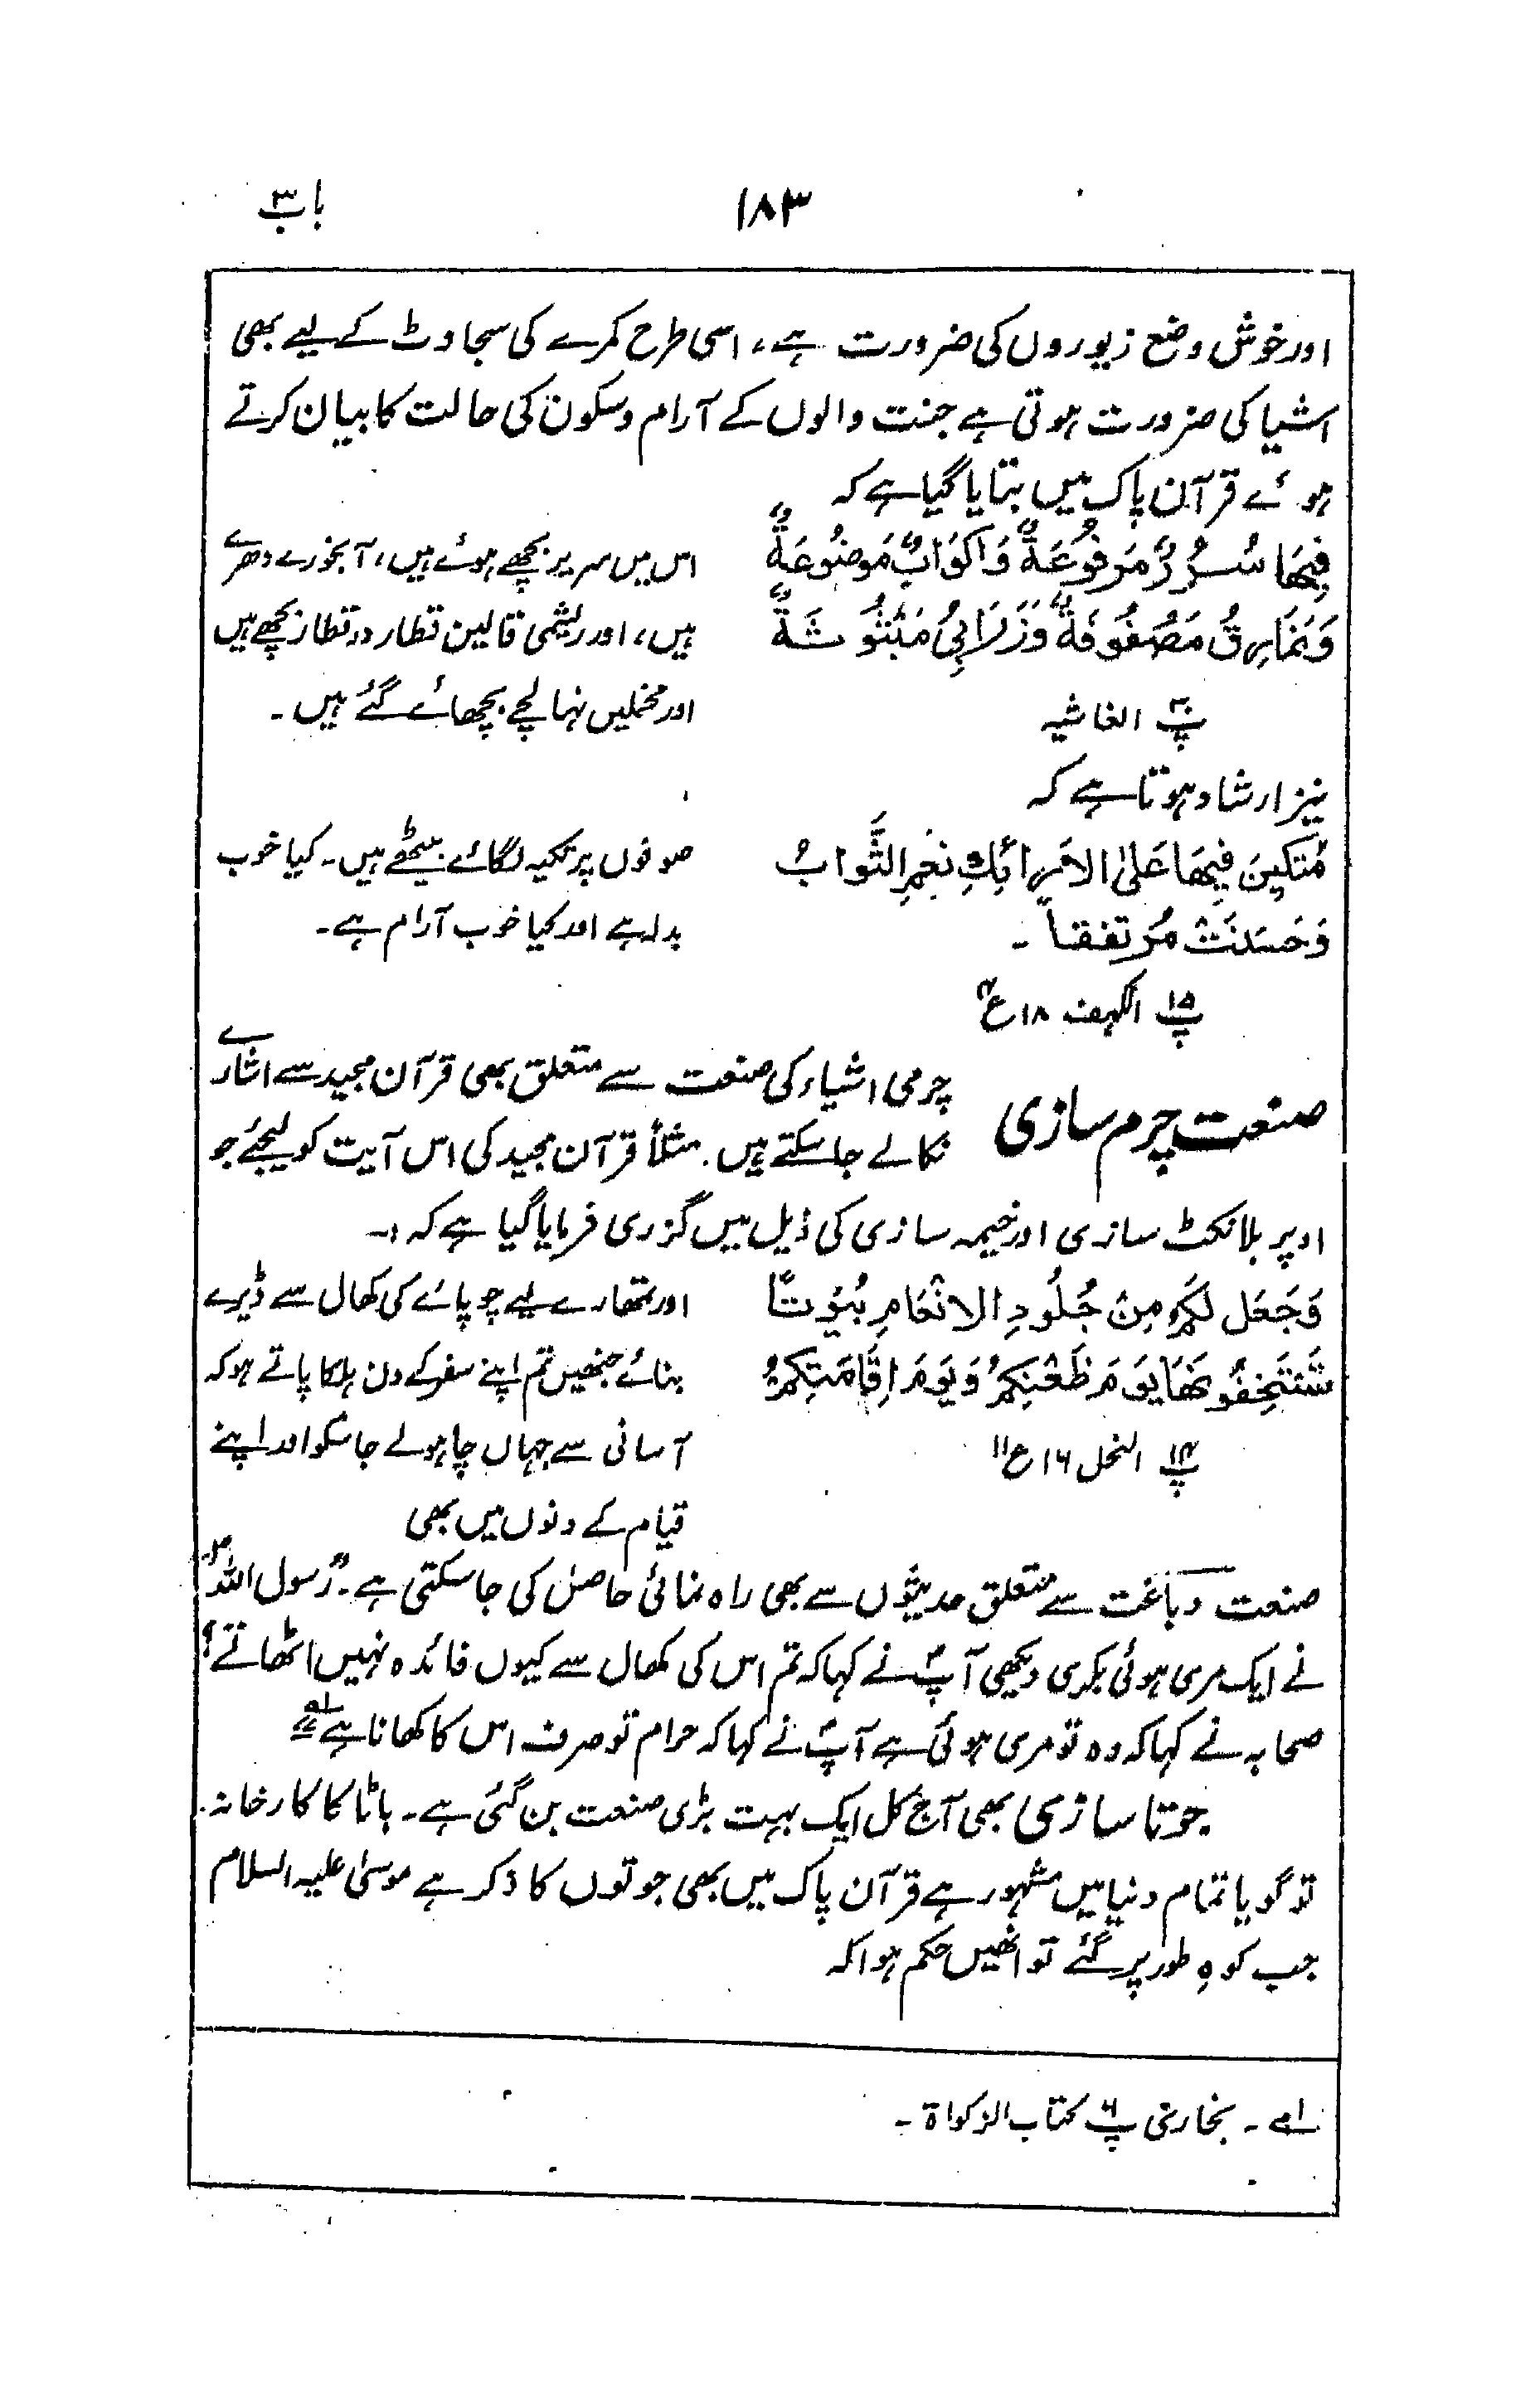 ۱۸۳
باب ۳
اور خوش وضع زیوروں کی ضرورت ہے، اسی طرح کمرے کی سجاوٹ کے لیے بھی
اشیا کی ضرورت ہوتی ہے جنت والوں کے آرام و سکون کی حالت کا بیان کرتے
ہوئے قرآن پاک میں بتایا گیا ہے کہ
فِیْهَا سُرُرٌ مَرْفُوْعَةٌ وَاَکْوَابٌ مَوْضُوْعَةٌ
وَنَمَارِقُ مَصْفُوْفَةٌ وَزَرَابِیُّ مَبْثُوْثَةٌ
پ۳۰ الغاشیہ
اس میں سریر بچھے ہوئے ہیں، آبخورے دھرے
ہیں، اور ریشمی قالین قطار در قطار بچھے ہیں
اور مخملیں نہالچے بچھائے گئے ہیں۔
نیز ارشاد ہوتا ہے کہ
مُتَّکِئِیْنَ فِیْهَا عَلَی الْاَرَائِكِ نِعْمَ الثَّوَابُ
وَحَسُنَتْ مُرْتَفَقاً ۔
پ۱۵ الکہف ۱۸ ع۴
صوفوں پر تکیہ لگائے بیٹھے ہیں۔ کیا خوب
بدلہ ہے اور کیا خوب آرام ہے۔
صنعت چرم سازی
چرمی اشیاء کی صنعت سے متعلق بھی قرآن مجید سے اشارے
نکالے جا سکتے ہیں۔ مثلاً قرآن مجید کی اس آیت کو لیجئے جو
اوپر بلانکٹ سازی اور خیمہ سازی کی ذیل میں گزری فرمایا گیا ہے کہ :۔
وَجَعَلَ لَکُمْ مِنْ جُلُوْدِ الْاَنْعَامِ بُیُوْتًا
تَسْتَخِفُّوْنَهَا یَوْمَ ظَعْنِکُمْ وَیَوْمَ اِقَامَتِکُمْ
پ۱۴ النحل ۱۶ ع۱۱
اور تمھارے لیے چوپائے کی کھال سے ڈیرے
بنائے جنھیں تم اپنے سفر کے دن ہلکا پاتے ہو کہ
آسانی سے جہاں چاہو لے جا سکو اور اپنے
قیام کے دنوں میں بھی
صنعت دباغت سے متعلق حدیثوں سے بھی راہ نمائی حاصل کی جا سکتی ہے۔ "رسول اللہؐ
نے ایک مری ہوئی بکری دیکھی آپؐ نے کہا کہ تم اس کی کھال سے کیوں فائدہ نہیں اٹھاتے؟
صحابہ نے کہا کہ وہ تو مری ہوئی ہے آپؐ نے کہا کہ حرام تو صرف اس کا کھانا ہے" ۱؎
جوتا سازی بھی آج کل ایک بہت بڑی صنعت بن گئی ہے۔ باٹا کا کارخانہ
تو گویا تمام دنیا میں مشہور ہے قرآن پاک میں بھی جوتوں کا ذکر ہے موسیٰ علیہ السلام
جب کوہِ طور پر گئے تو انھیں حکم ہوا کہ
۱؎ ۔ بخاری پ۶ کتاب الزکواة ۔